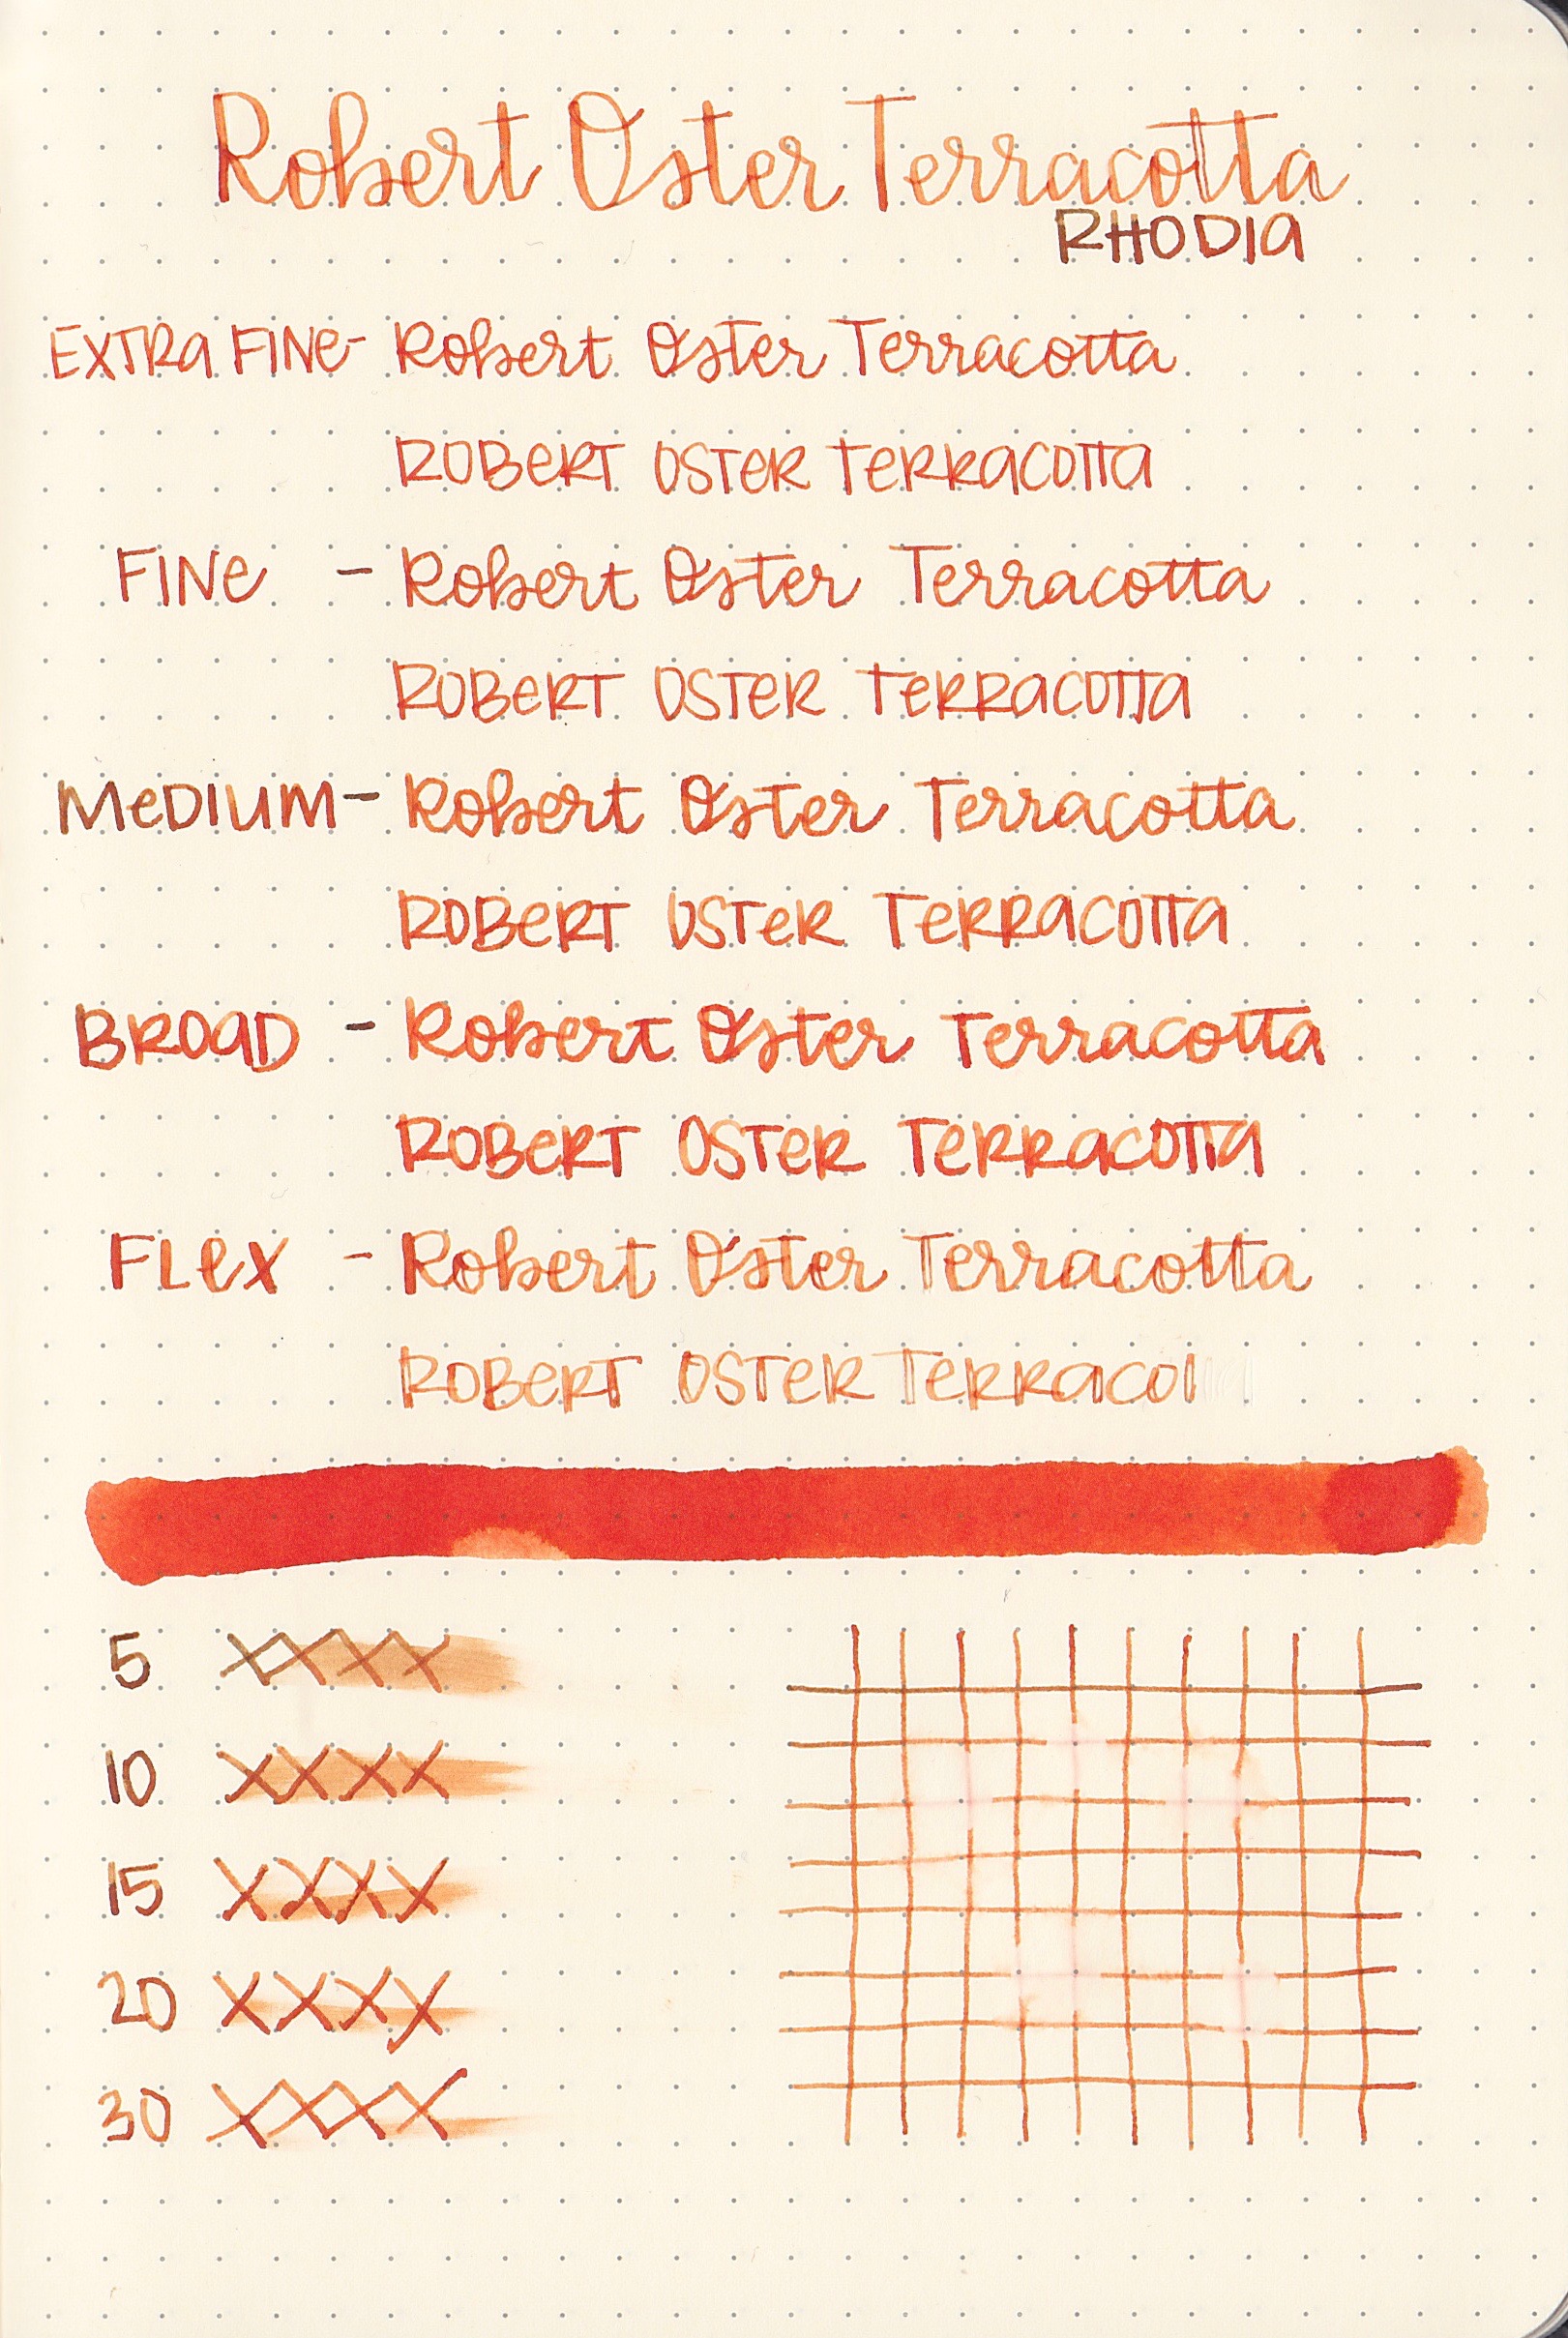 Robert Oster Terracotta
RHODIA
EXTRA FINE - Robert Oster Terracotta
ROBERT OSTER TERRACOTTA
FINE - Robert Oster Terracotta
ROBERT OSTER TERRACOTTA
MEDIUM - Robert Oster Terracotta
ROBERT OSTER TERRACOTTA
BROAD - Robert Oster Terracotta
ROBERT OSTER TERRACOTTA
FLEX - Robert Oster Terracotta
ROBERT OSTER TERRACO
5 XXXX
10 XXXX
15 XXXX
20 XXXX
30 XXXX